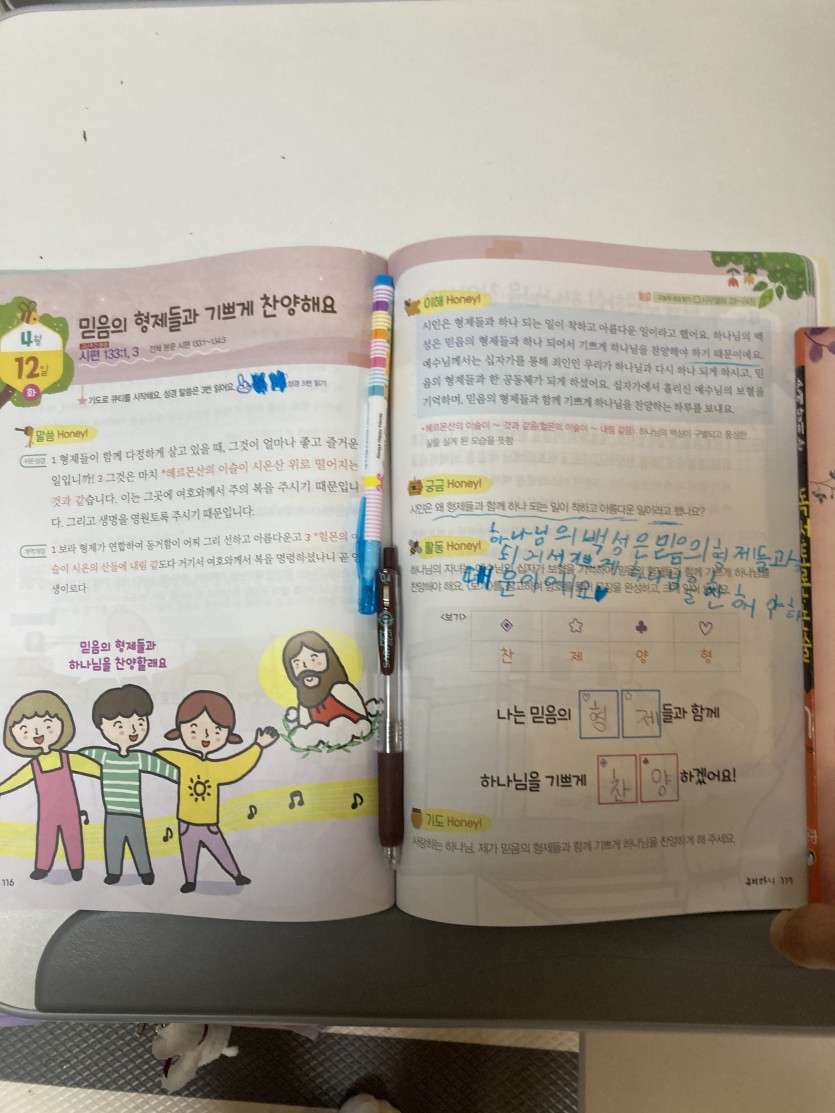 4월
12일
화
믿음의 형제들과 기쁘게 찬양해요
시편 133:1, 3 전체 본문 시편 133:1~134:3
★기도로 큐티를 시작해요. 성경 말씀은 3번 읽어요. 성경 3번 읽기
말씀 Honey!
쉬운성경 1 형제들이 함께 다정하게 살고 있을 때, 그것이 얼마나 좋고 즐거운
일입니까! 3 그것은 마치 *헤르몬산의 이슬이 시온산 위로 떨어지는
것과 같습니다. 이는 그곳에 여호와께서 주의 복을 주시기 때문입니
다. 그리고 생명을 영원토록 주시기 때문입니다.
개역개정 1 보라 형제가 연합하여 동거함이 어찌 그리 선하고 아름다운고 3 *헐몬의 이
슬이 시온의 산들에 내림 같도다 거기서 여호와께서 복을 명령하셨나니 곧 영
생이로다
믿음의 형제들과
하나님을 찬양할래요
116
이해 Honey!
시인은 형제들과 하나 되는 일이 착하고 아름다운 일이라고 했어요. 하나님의 백
성은 믿음의 형제들과 하나 되어서 기쁘게 하나님을 찬양해야 하기 때문이에요.
예수님께서는 십자가를 통해 죄인인 우리가 하나님과 다시 하나 되게 하시고, 믿
음의 형제들과 한 공동체가 되게 하셨어요. 십자가에서 흘리신 예수님의 보혈을
기억하며, 믿음의 형제들과 함께 기쁘게 하나님을 찬양하는 하루를 보내요.
*헤르몬산의 이슬이 ~ 것과 같음(헐몬의 이슬이 ~ 내림 같음) 하나님의 백성이 구별되고 풍성한
삶을 살게 된 모습을 뜻함
궁금 Honey!
시인은 왜 형제들과 함께 하나 되는 일이 착하고 아름다운 일이라고 했나요?
하나님의 백성은 믿음의 형제들과
되거서 기쁘게 하나님을 찬 해야하
때문이에요♥
활동 Honey!
하나님의 자녀는 예수님의 십자가 보혈을 기억하며 믿음의 형제들과 함께 기쁘게 하나님을
찬양해야 해요. <보기>를 참고하여
<보기>
찬 제 양 형
나는 믿음의 형제들과 함께
하나님을 기쁘게 찬양하겠어요!
기도 Honey!
사랑하는 하나님, 제가 믿음의 형제들과 함께 기쁘게 하나님을 찬양하게 해 주세요.
117
0.4